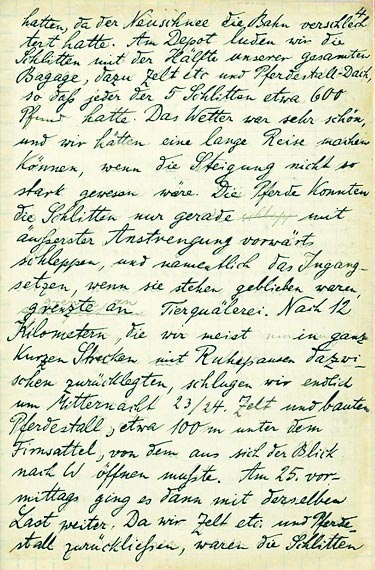 4
hatten, da der Neuschnee die Bahn verschlech
tert hatte. Am Depot luden wir die
Schlitten mit der Hälfte unserer gesamten
Bagage, dazu Zelt etc und Pferdestall-Dach,
so daß jeder der 5 Schlitten etwa 600
Pfund hatte. Das Wetter war sehr schön,
und wir hätten eine lange Reise machen
können, wenn die Steigung nicht so
stark gewesen wäre. Die Pferde konnten
die Schlitten nur gerade mit
äußerster Anstrengung vorwärts
schleppen, und namentlich das Ingang-
setzen, wenn sie stehen geblieben waren,
grenzte an Tierquälerei. Nach 12
Kilometern, die wir meist in ganz
kurzen Strecken mit Ruhepausen dazwi-
schen zurücklegten, schlugen wir endlich
um Mitternacht 23/24. Zelt und bauten
Pferdestall, etwa 100 m unter dem
Firnsattel, von dem aus sich der Blick
nach W öffnen mußte. Am 25. vor-
mittags ging es dann mit derselben
Last weiter. Da wir Zelt etc. und Pferde-
stall zurückließen, waren die Schlitten